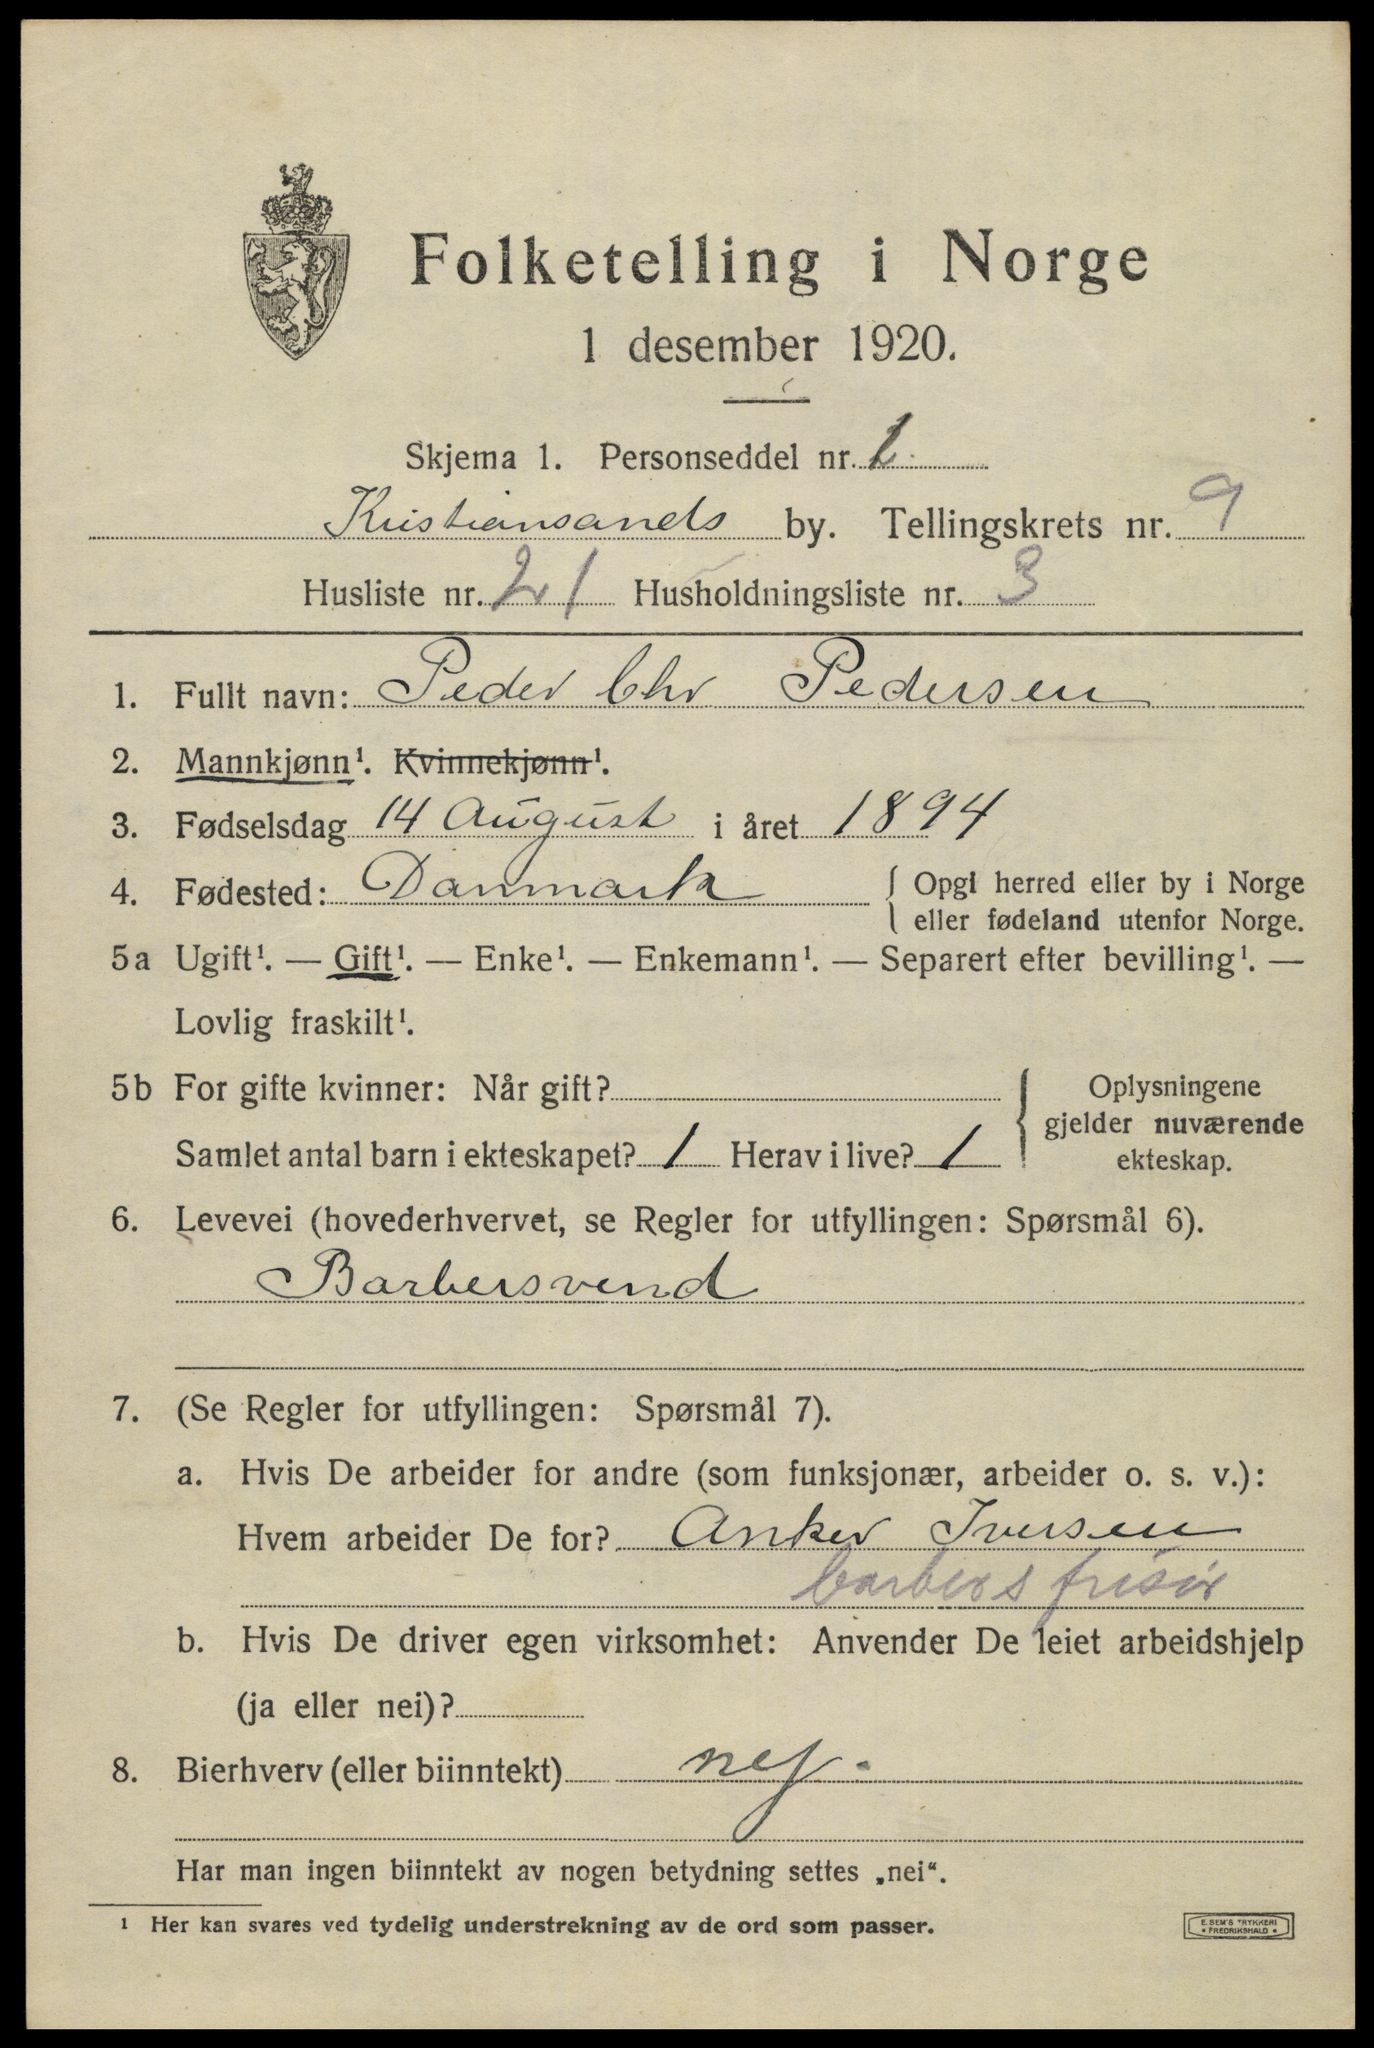 Folketelling i Norge
1 desember 1920.
Skjema 1. Personseddel nr. 1
Kristiansands by. Tellingskrets nr. 9
Husliste nr. 21 Husholdningsliste nr. 3
1. Fullt navn: Peder Chr Pedersen
2. Mannkjønn¹. Kvinnekjønn¹.
3. Fødselsdag 14 August i året 1894
4. Fødested: Danmark { Opgi herred eller by i Norge
eller fødeland utenfor Norge.
5a Ugift¹. — Gift¹. — Enke¹. — Enkemann¹. — Separert efter bevilling¹. —
Lovlig fraskilt¹.
5b For gifte kvinner: Når gift?
Samlet antal barn i ekteskapet? 1 Herav i live? 1
Oplysningene
gjelder nuværende
ekteskap.
6. Levevei (hovederhvervet, se Regler for utfyllingen: Spørsmål 6).
Barbersvend
7. (Se Regler for utfyllingen: Spørsmål 7).
a. Hvis De arbeider for andre (som funksjonær, arbeider o. s. v.):
Hvem arbeider De for? Anker Iversen
barber & frisør
b. Hvis De driver egen virksomhet: Anvender De leiet arbeidshjelp
(ja eller nei)?
8. Bierhverv (eller biinntekt) nej.
Har man ingen biinntekt av nogen betydning settes „nei“.
¹ Her kan svares ved tydelig understrekning av de ord som passer.
E. SEM'S TRYKKERI
• FREDRIKSHALD •